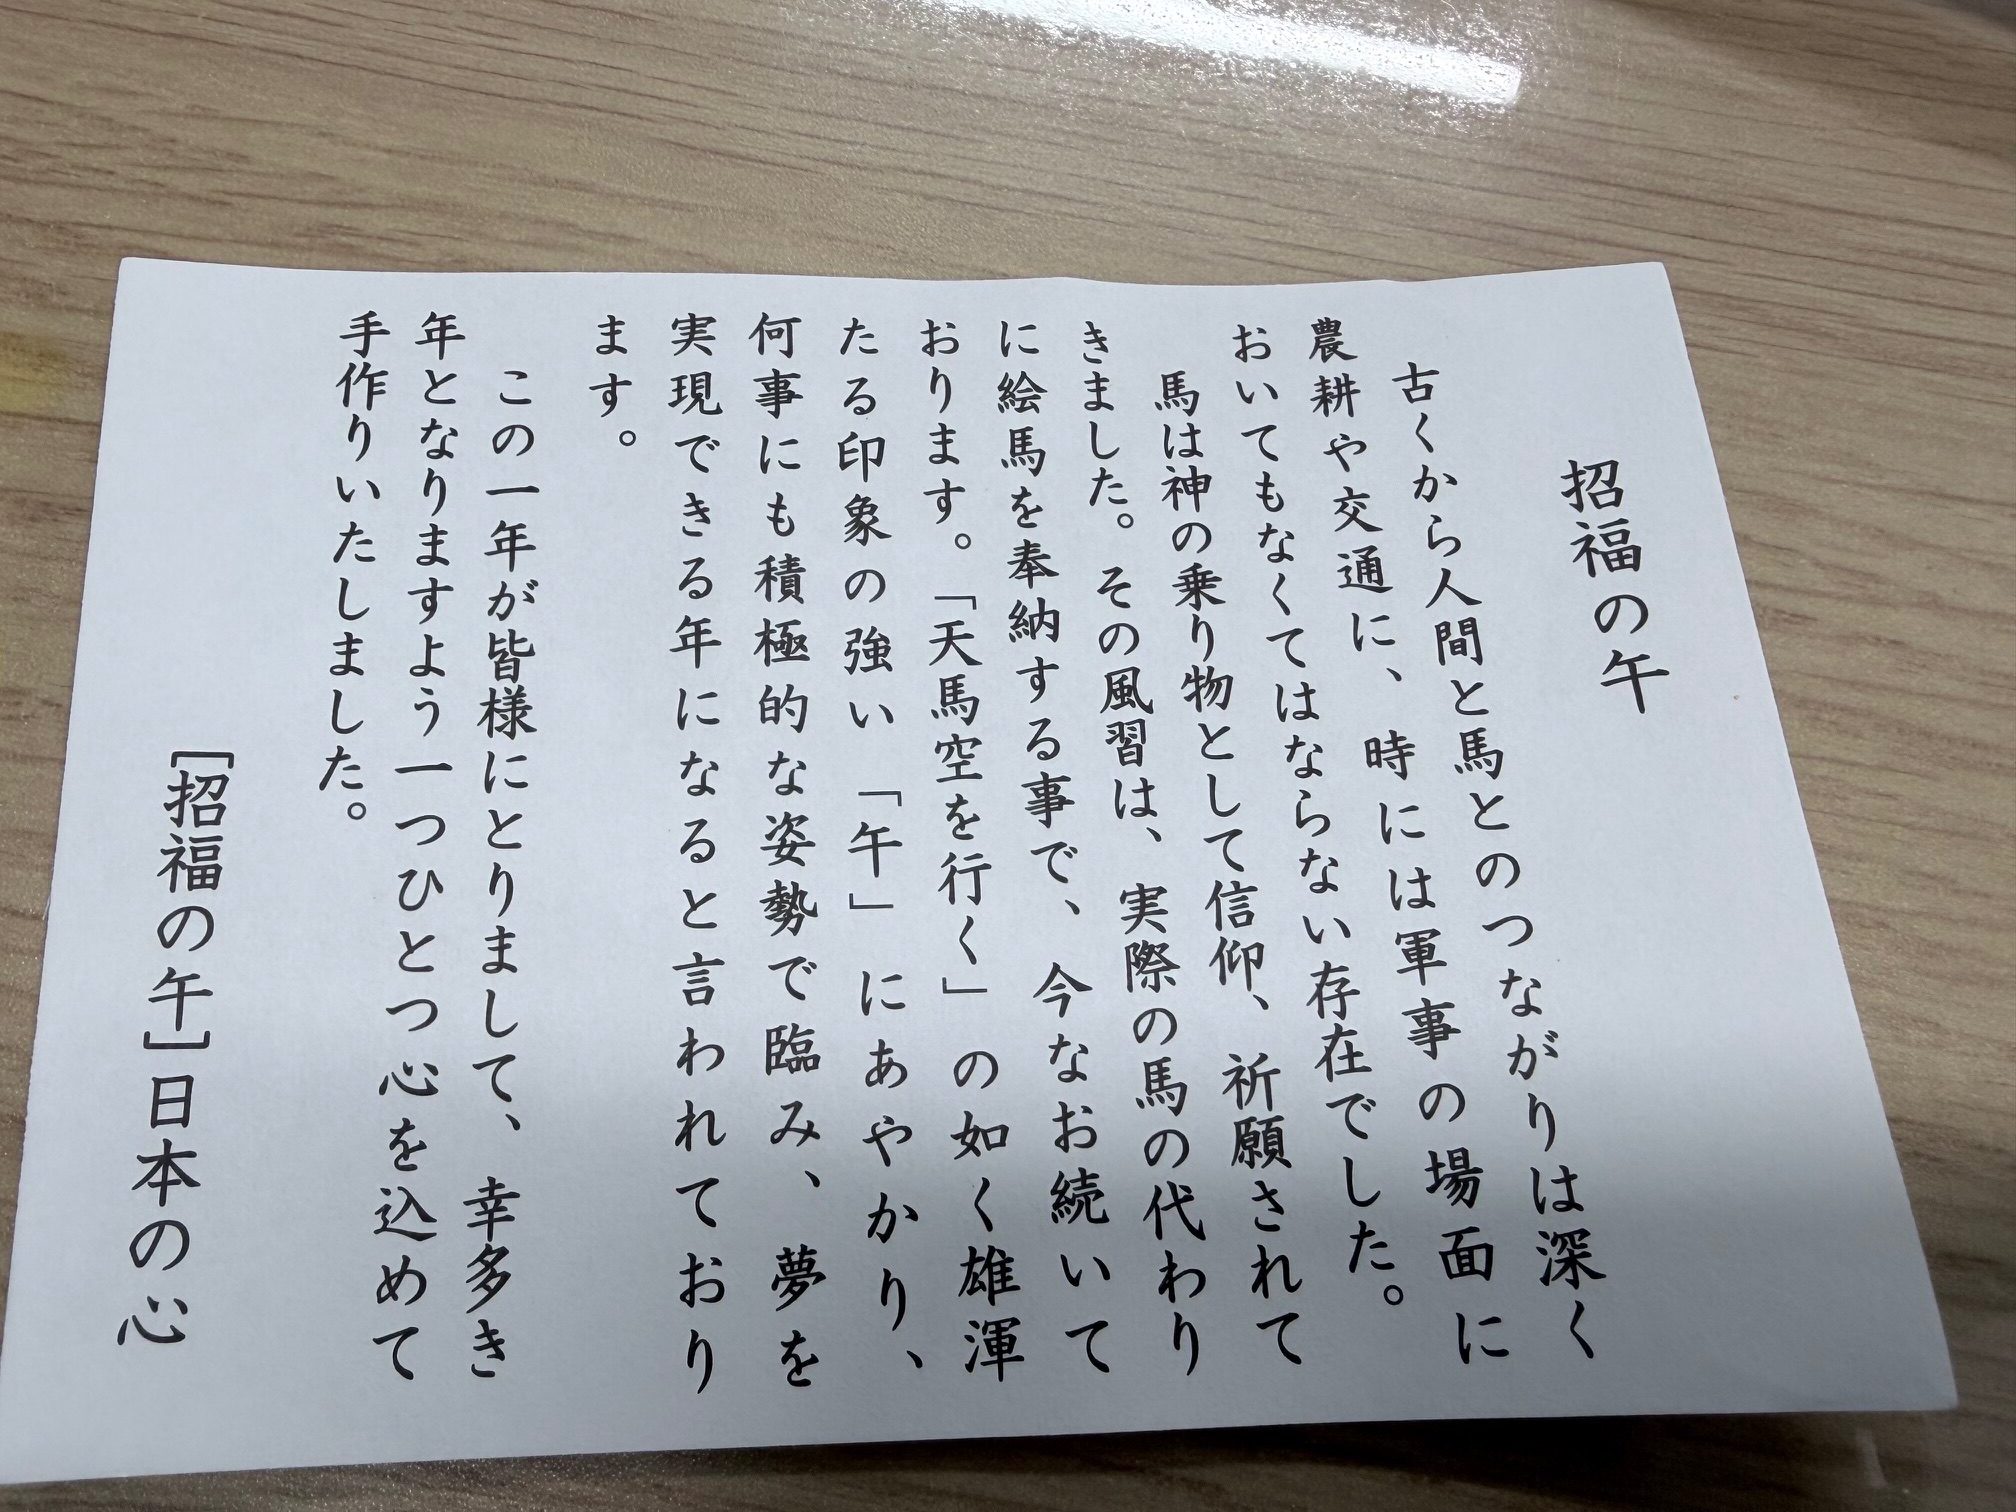 招福の午
古くから人間と馬とのつながりは深く
農耕や交通に、時には軍事の場面に
おいてもなくてはならない存在でした。
馬は神の乗り物として信仰、祈願されて
きました。その風習は、実際の馬の代わり
に絵馬を奉納する事で、今なお続いて
おります。「天馬空を行く」の如く雄渾
たる印象の強い「午」にあやかり、
何事にも積極的な姿勢で臨み、夢を
実現できる年になると言われており
ます。
この一年が皆様にとりまして、幸多き
年となりますよう一つひとつ心を込めて
手作りいたしました。
[招福の午]日本の心